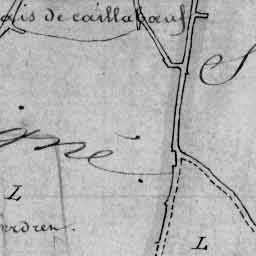 ais de caillabœuf
S
gné
L
erdren.
L